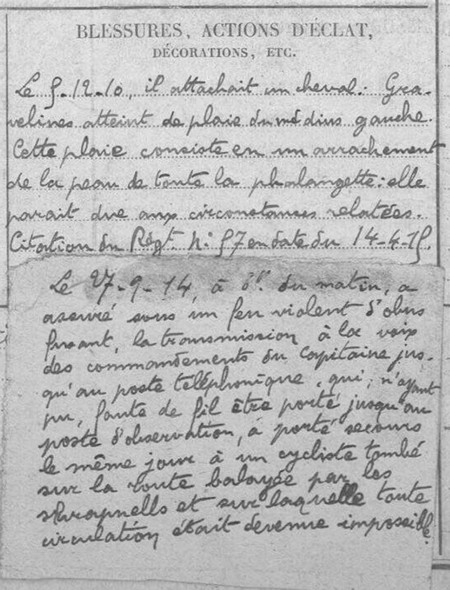 BLESSURES, ACTIONS D'ÉCLAT,
DÉCORATIONS, ETC.
Le 5-12-10, il attachait un cheval. Gra-
velines atteint de plaie du médius gauche.
Cette plaie consiste en un arrachement
de la peau de toute la phalangette : elle
parait due aux circonstances relatées.
Citation du Régt. N° 57 en date du 14-4-15.
Le 27-9-14, à 6h du matin, a
assuré sous un feu violent d'obus
fusant, la transmission à la voix
des commandements du Capitaine jus-
qu'au poste téléphonique, qui, n'ayant
pu, faute de fil être porté jusqu'au
poste d'observation, a porté secours
le même jour à un cycliste tombé
sur la route balayée par les
shrapnells et sur laquelle toute
circulation était devenue impossible.